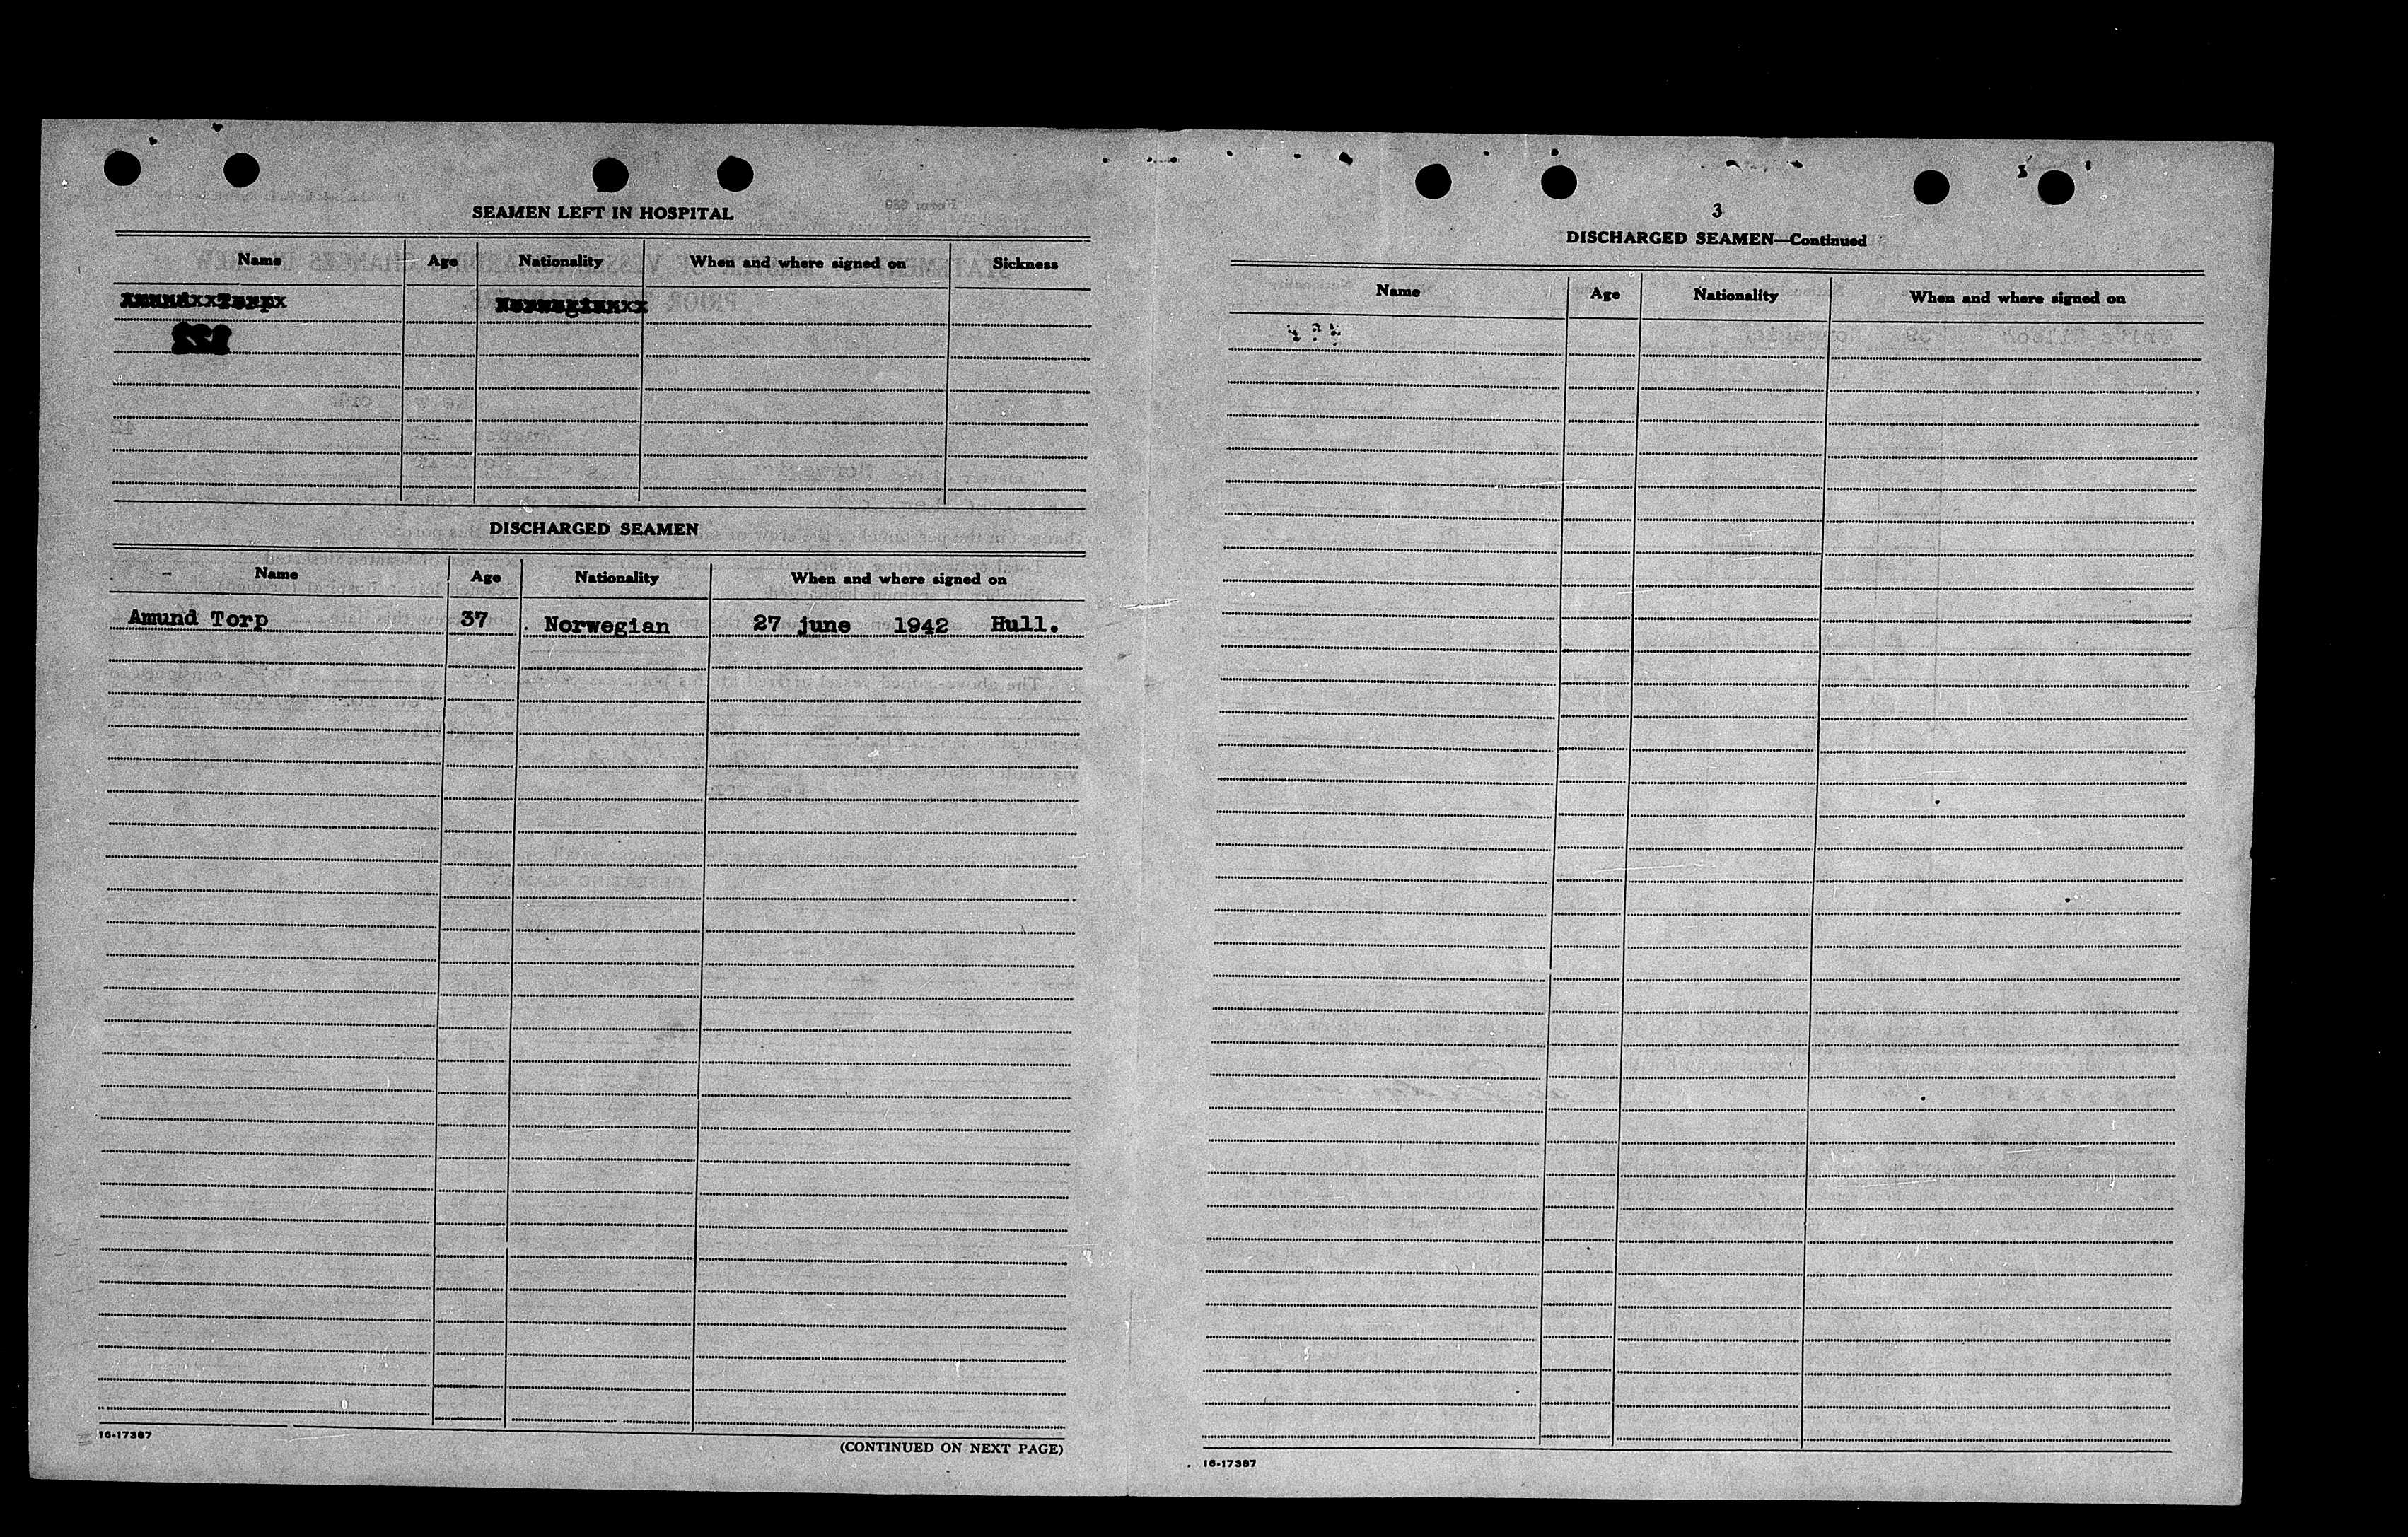 SEAMEN LEFT IN HOSPITAL
Name Age Nationality When and where signed on Sickness
DISCHARGED SEAMEN
Name Age Nationality When and where signed on
Amund Torp 37 Norwegian 27 june 1942 Hull.
16-17387
(CONTINUED ON NEXT PAGE)
3
DISCHARGED SEAMEN—Continued
Name Age Nationality When and where signed on
16-17387